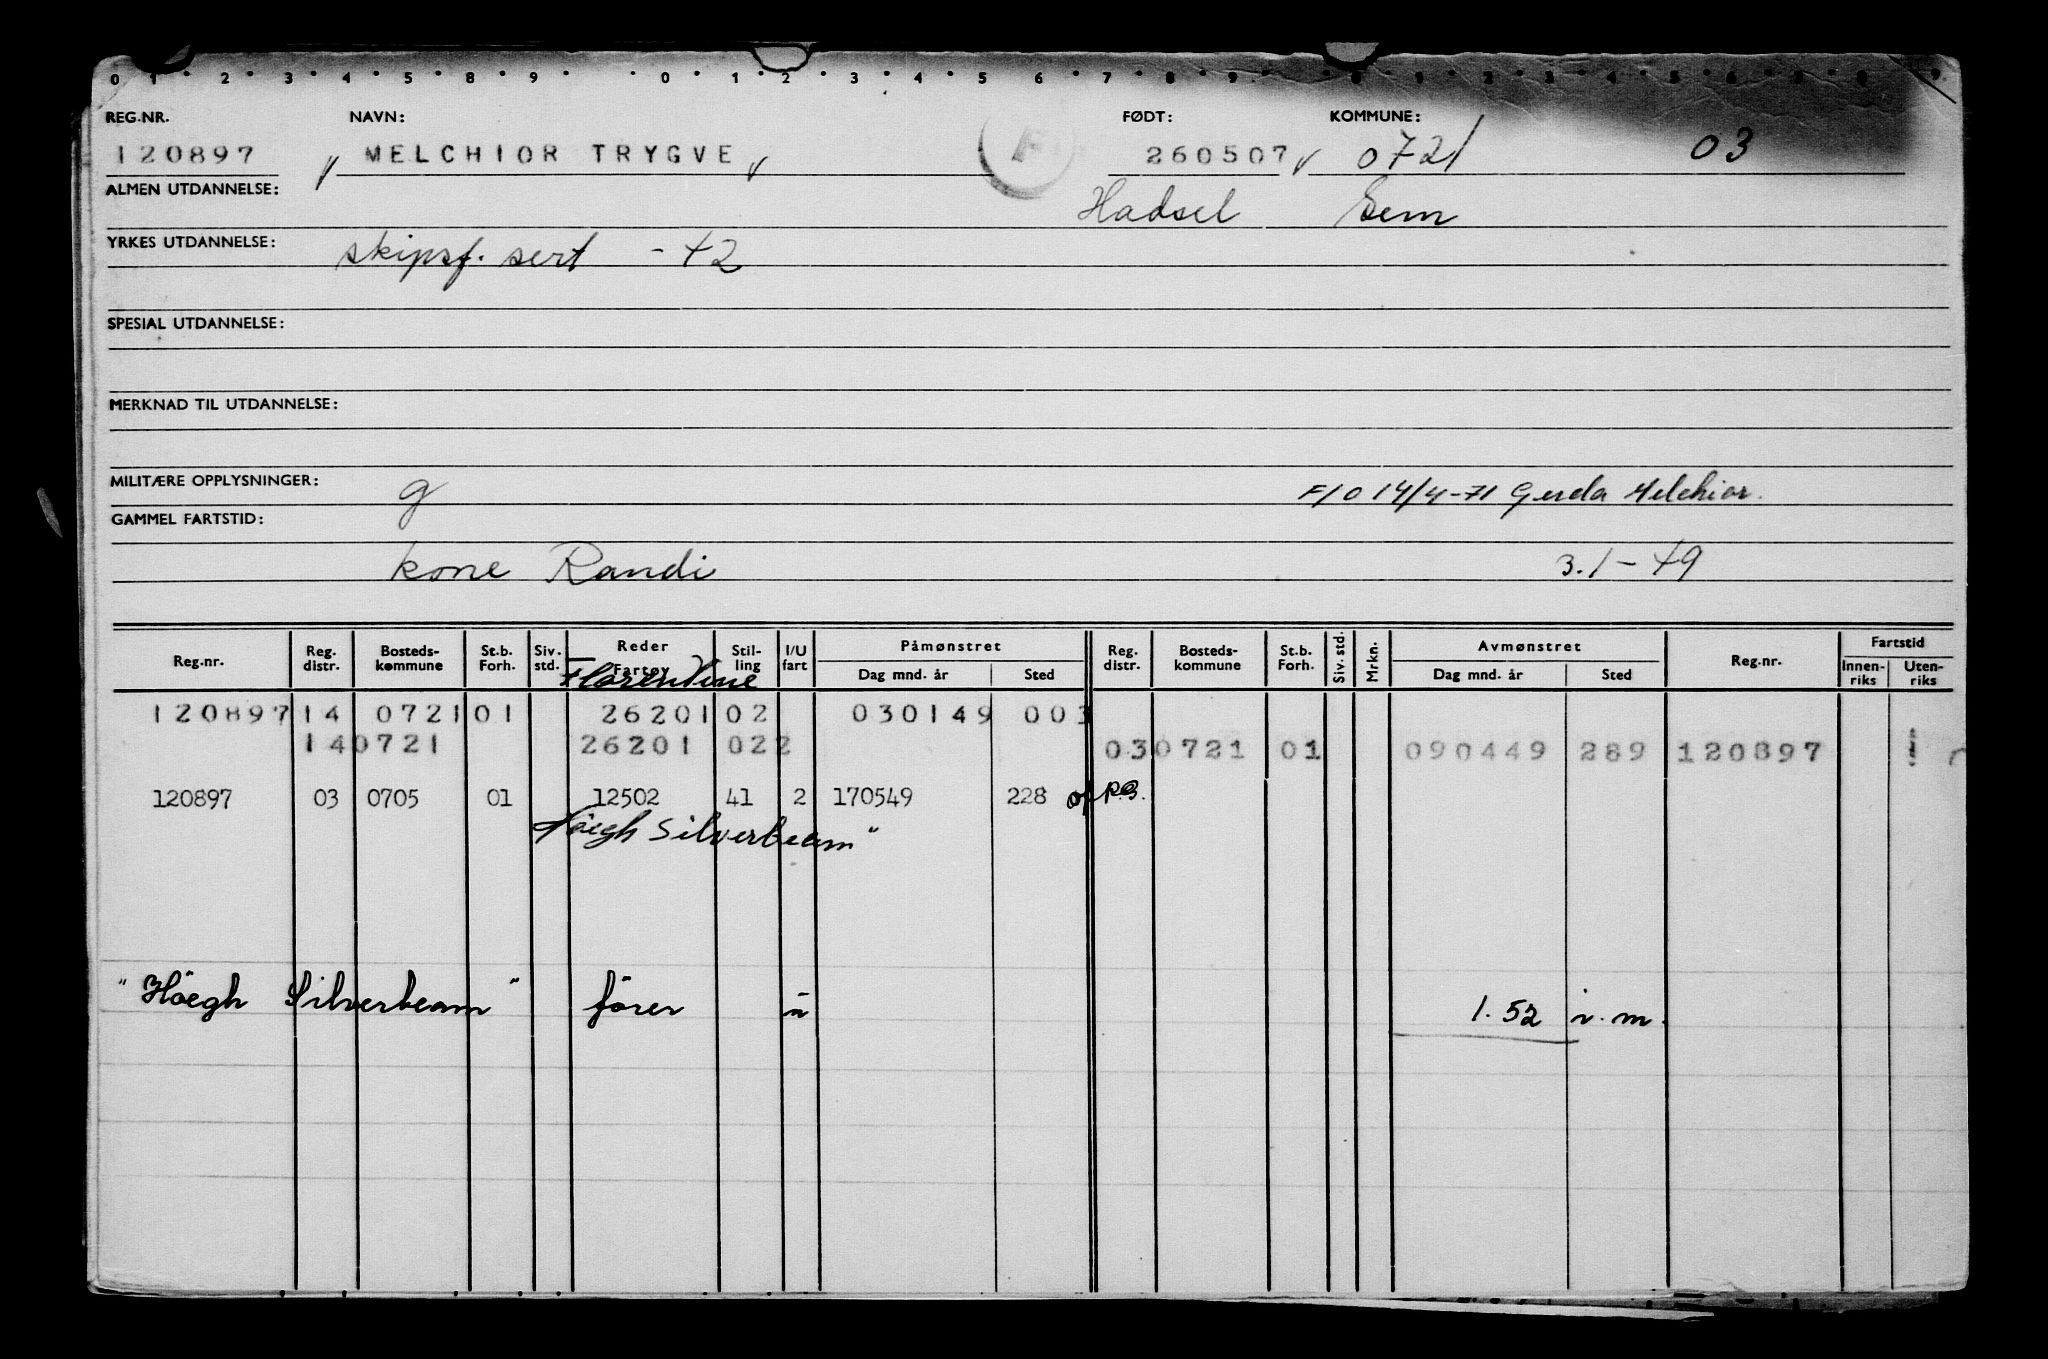 0 1 2 3 4 5 8 9 0 1 2 3 4 5 6 7 8 9 0 1 2 3 4 5 6 7 8 9
REG.NR. NAVN: FØDT: KOMMUNE:
120897 MELCHIOR TRYGVE F 260507 0721 03
ALMEN UTDANNELSE: Hadsel Sem
YRKES UTDANNELSE: skipsf. sert -42
SPESIAL UTDANNELSE:
MERKNAD TIL UTDANNELSE:
MILITÆRE OPPLYSNINGER: g F/O 14/4-71 Gerda Melchior.
GAMMEL FARTSTID:
kone Randi 3.1-49
Reg.nr. Reg. distr. Bosteds-kommune St.b. Forh. Siv. std. Reder Fartøy Stil-ling I/U fart Påmønstret Reg. distr. Bosteds-kommune St.b. Forh. Siv. std. Mrkn. Avmønstret Reg.nr. Fartstid
Dag mnd. år Sted Dag mnd. år Sted Innen-riks Uten-riks
Florentine
120897 14 0721 01 26201 02 030149 003
14 0721 26201 022 03 0721 01 090449 289 120897
120897 03 0705 01 12502 41 2 170549 228
Höegh Silverbeam"
"Höegh Silverbeam" förer u 1.52 i.m.